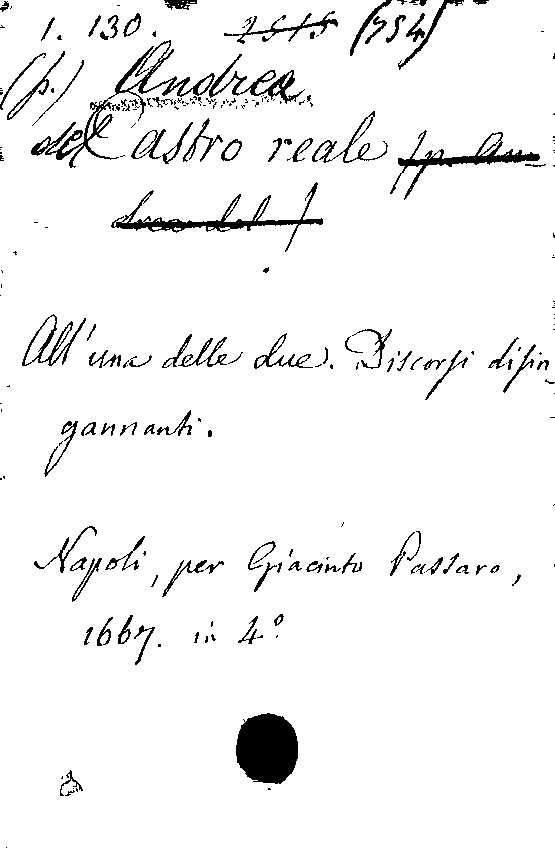 1. 130. 2515 (754)
(p.) Andrea
del Castro reale (p. An-
drea del)
All'una delle due. Discorsi disin
gannanti.
Napoli, per Giacinto Passaro,
1667. in 4.º